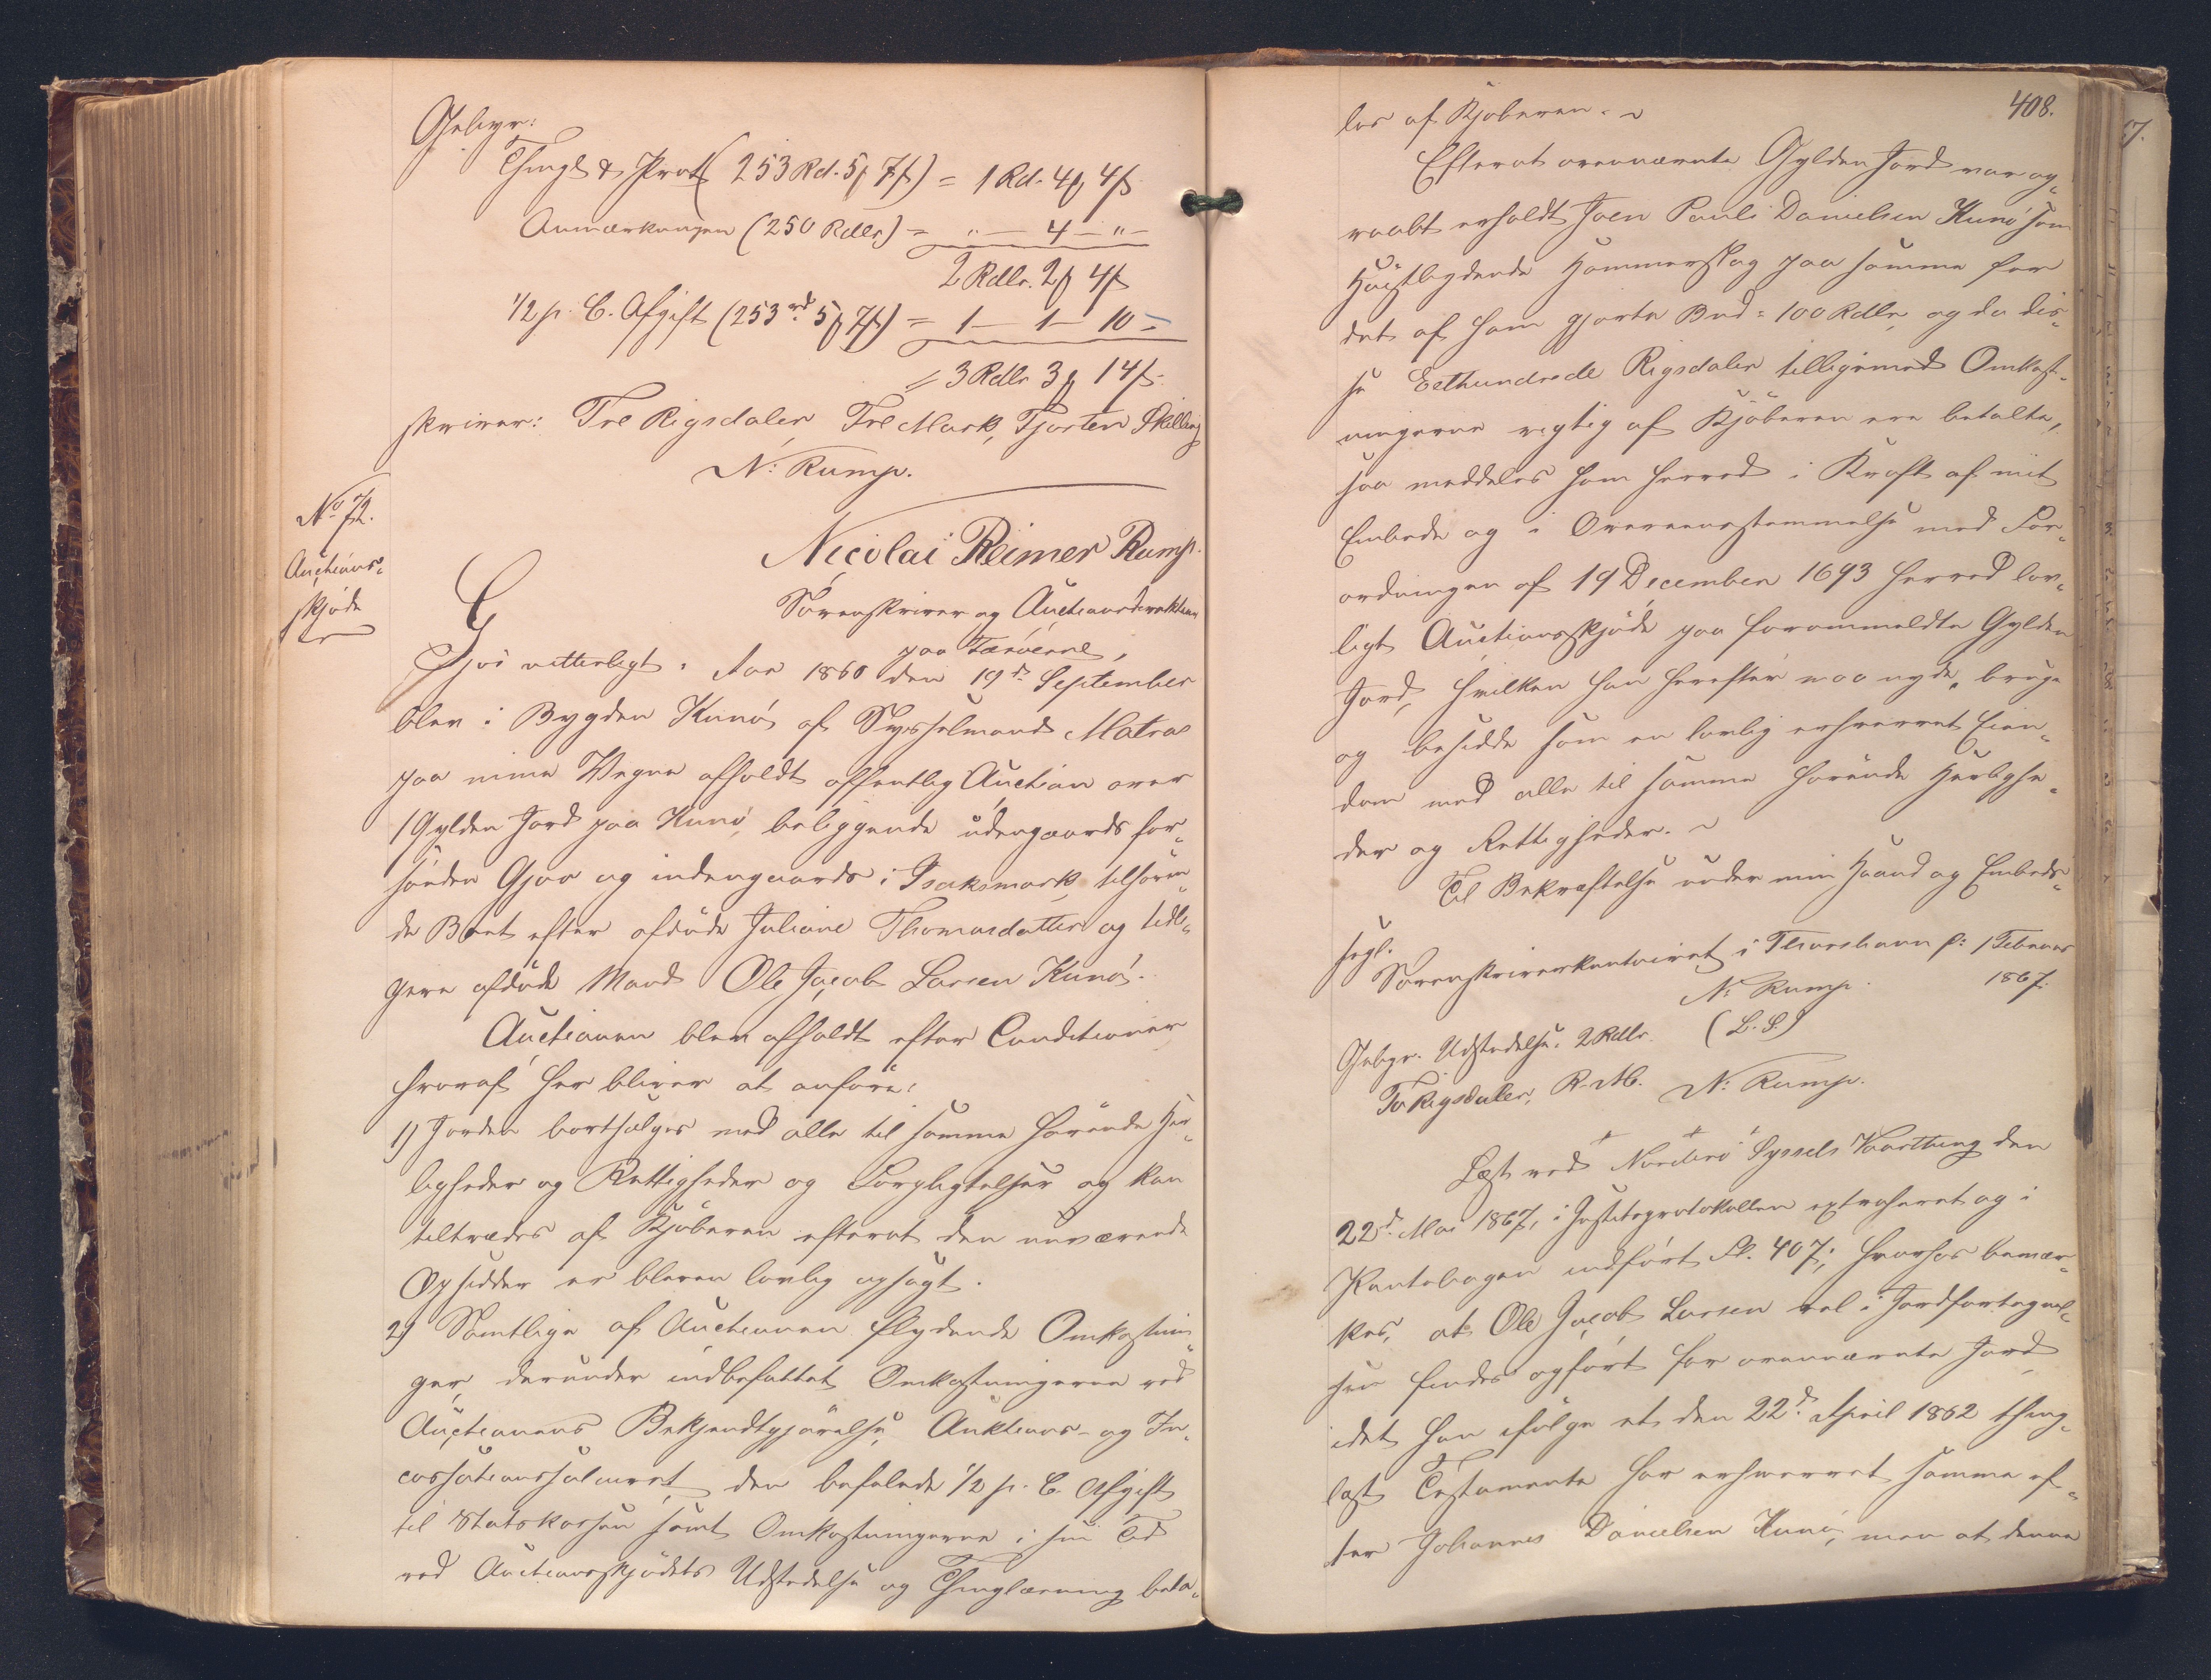 Gebyr:
Thingl & Prot (253 Rd. 5 ₻ 7 ß) = 1 Rd. 4 ₻ 4 ß
Anmærkningen (250 Rdlr) = " — 4 — " —
2 Rdlr. 2 ₻ 4 ß
1/2 p. C. Afgift (253 rd 5 ₻ 7 ß) = 1 — 1 — 10 =
= 3 Rdlr 3 ₻ 14 ß.
skriver: Tre Rigsdaler, Tre Mark, Fjorten Skilling
N: Rump.
No 72.
Auctions-
skjøde
Nicolai Reimer Rump.
Sorenskriver og Auctionsdirekteur
paa Færöerne,
Gjör vitterligt: Aar 1860 den 19de September
blev i Bygden Kunö af Sysselmand Matras
paa mine Vegne afholdt offentlig Auction over
1 Gylden Jord paa Kunö, beliggende udengaards for-
sönden Gjov og indengaards i Isaksmark, tilhören-
de Boet efter afdöde Juliane Thomasdatter og tidli-
gere afdöde Mand Ole Jacob Larsen Kunö.
Auctionen blev afholdt efter Conditioner
hvoraf her bliver at anföre:
1) Jorden bortsælges med alle til samme hörende Her-
ligheder og Rettigheder og Forpligtelser og kan
tiltrædes af Kjöberen efterat den nuværende
Opsidder er bleven lovlig opsagt.
2) Samtlige af Auctionen flydende Omkostnin-
ger, derunder indbefattet Omkostningerne ved
Auctionens Bekjendtgjörelse, Auktions- og In-
cassationssalairet, den befalede 1/2 p. C. Afgift
til Statskassen samt Omkostningerne i sin Tid
ved Auctionsskjödets Udstedelse og Thinglæsning beta-
408.
les af Kjöberen.
Efterat ovennævnte Gylden Jord var op-
raabt erholdt Joen Pauli Danielsen Kunö som
Höistbydende Hammerslag paa samme for
det af ham gjorte Bud = 100 Rdlr, og da dis-
se Eethundrede Rigsdaler tilligemed Omkost-
ningerne rigtig af Kjöberen ere betalte,
saa meddeles ham herved i Kraft af mit
Embede og i Overeensstemmelse med For-
ordningen af 19 December 1693 herved lov-
ligt Auctionsskjöde paa forommeldte Gylden
Jord, hvilken han herefter maa nyde, bruge
og besidde som en lovlig erhvervet Eien-
dom med alle til samme hörende Herlighe-
der og Rettigheder.
Til Bekræftelse under min Haand og Embeds-
segl.
Sorenskriverkontoiret i Thorshavn d: 1 Februar
1867.
N: Rump.
(L. S.)
Gebyr. Udstedelse. 2 Rdlr.
To Rigsdaler, R. M. N: Rump.
Læst ved Norderö Syssels Vaarthing den
22de Mai 1867, i Justitsprotokollen extraheret og i
Pantebogen indfört Fl. 407; hvorhos bemær-
kes, at Ole Jacob Larsen vel i Jordfortegnel-
sen findes opfört for ovennævnte Jord,
idet han ifölge et den 22de April 1862 thing-
læst Testamente har erhvervet samme ef-
ter Johannes Danielsen Kunö, men at denne